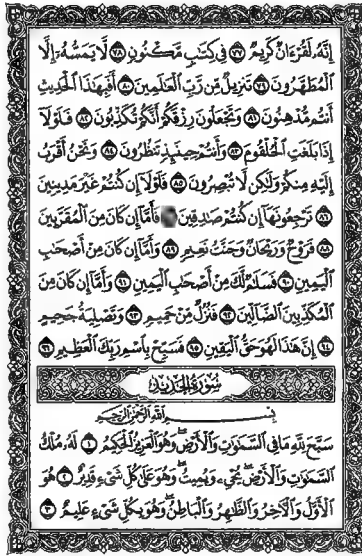 إِنَّهُۥ لَقُرْءَانٌ كَرِيمٌ ٧٧ فِى كِتَٰبٍ مَّكْنُونٍ ٧٨ لَّا يَمَسُّهُۥٓ إِلَّا
ٱلْمُطَهَّرُونَ ٧٩ تَنزِيلٌ مِّن رَّبِّ ٱلْعَٰلَمِينَ ٨٠ أَفَبِهَٰذَا ٱلْحَدِيثِ
أَنتُم مُّدْهِنُونَ ٨١ وَتَجْعَلُونَ رِزْقَكُمْ أَنَّكُمْ تُكَذِّبُونَ ٨٢ فَلَوْلَآ
إِذَا بَلَغَتِ ٱلْحُلْقُومَ ٨٣ وَأَنتُمْ حِينَئِذٍ تَنظُرُونَ ٨٤ وَنَحْنُ أَقْرَبُ
إِلَيْهِ مِنكُمْ وَلَٰكِن لَّا تُبْصِرُونَ ٨٥ فَلَوْلَآ إِن كُنتُمْ غَيْرَ مَدِينِينَ
٨٦ تَرْجِعُونَهَآ إِن كُنتُمْ صَٰدِقِينَ فَأَمَّآ إِن كَانَ مِنَ ٱلْمُقَرَّبِينَ
٨٨ فَرَوْحٌ وَرَيْحَانٌ وَجَنَّتُ نَعِيمٍ ٨٩ وَأَمَّآ إِن كَانَ مِنْ أَصْحَٰبِ
ٱلْيَمِينِ ٩٠ فَسَلَٰمٌ لَّكَ مِنْ أَصْحَٰبِ ٱلْيَمِينِ ٩١ وَأَمَّآ إِن كَانَ مِنَ
ٱلْمُكَذِّبِينَ ٱلضَّآلِّينَ ٩٢ فَنُزُلٌ مِّنْ حَمِيمٍ ٩٣ وَتَصْلِيَةُ جَحِيمٍ
٩٤ إِنَّ هَٰذَا لَهُوَ حَقُّ ٱلْيَقِينِ ٩٥ فَسَبِّحْ بِٱسْمِ رَبِّكَ ٱلْعَظِيمِ ٩٦
سُورَةُ الحَدِيد
بِسْمِ ٱللَّهِ ٱلرَّحْمَٰنِ ٱلرَّحِيمِ
سَبَّحَ لِلَّهِ مَا فِى ٱلسَّمَٰوَٰتِ وَٱلْأَرْضِ ۖ وَهُوَ ٱلْعَزِيزُ ٱلْحَكِيمُ ١ لَهُۥ مُلْكُ
ٱلسَّمَٰوَٰتِ وَٱلْأَرْضِ ۖ يُحْىِۦ وَيُمِيتُ ۖ وَهُوَ عَلَىٰ كُلِّ شَىْءٍ قَدِيرٌ ٢ هُوَ
ٱلْأَوَّلُ وَٱلْءَاخِرُ وَٱلظَّٰهِرُ وَٱلْبَاطِنُ ۖ وَهُوَ بِكُلِّ شَىْءٍ عَلِيمٌ ٣